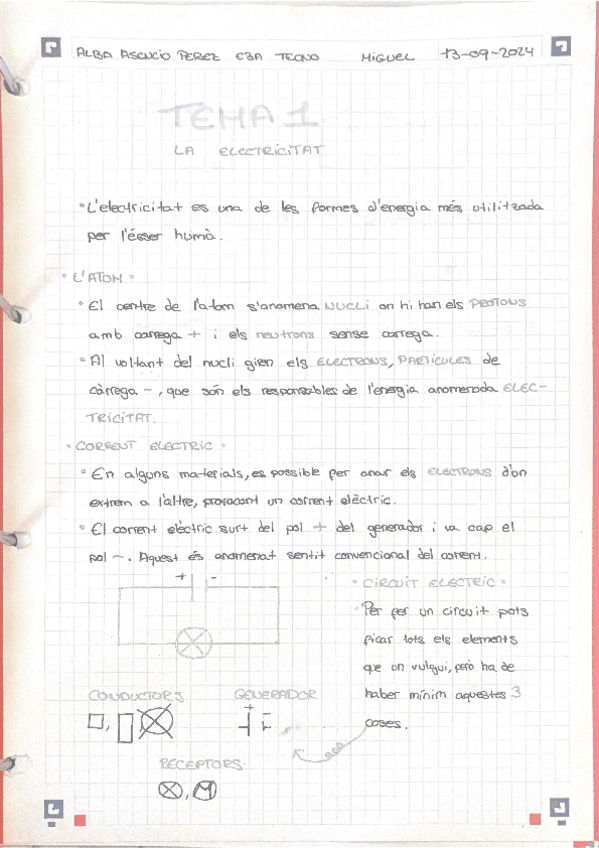 ALBA ASENCIO PEREZ E3A TECNO MIGUEL 13-09-2024
TEMA 1
LA ELECTRICITAT
• L'electricitat es una de les formes d'energia més utilitzada
per l'ésser humà.
• L'ATOM •
• El centre de l'atom s'anomena NUCLI on hi han els PROTONS
amb carrega + i els neutrons sense carrega.
• Al voltant del nucli giren els ELECTRONS, PARTICULES de
càrrega -, que són els responsables de l'energia anomenada ELEC-
TRICITAT.
• CORRENT ELECTRIC •
• En alguns materials, es possible fer anar els ELECTRONS d'on
extrem a l'altre, provocant un corrent elèctric.
• El corrent elèctric surt del pol + del generador i va cap el
pol -. Aquest és anomenat sentit convencional del corrent.
+ -
• CIRCUIT ELECTRIC •
Per fer un circuit pots
ficar tots els elements
que on vulgui, però ha de
haber mínim aquestes 3
coses.
CONDUCTORS GENERADOR
+ -
RECEPTORS
M